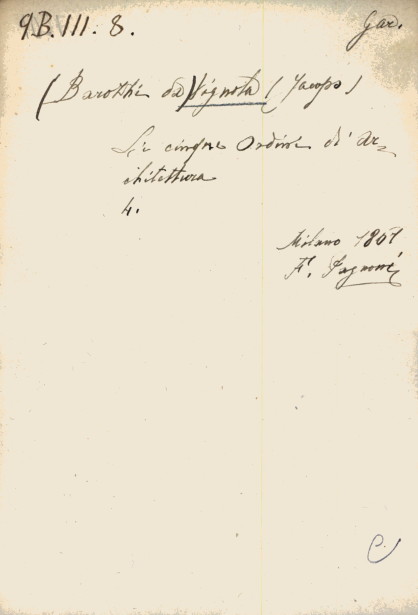 9B.III.8.
Gar.
(Barozzi da) Vignola (Jacopo)
Li cinque Ordini di Ar-
chitettura
4.
Milano 18
F. Pagnoni
C.